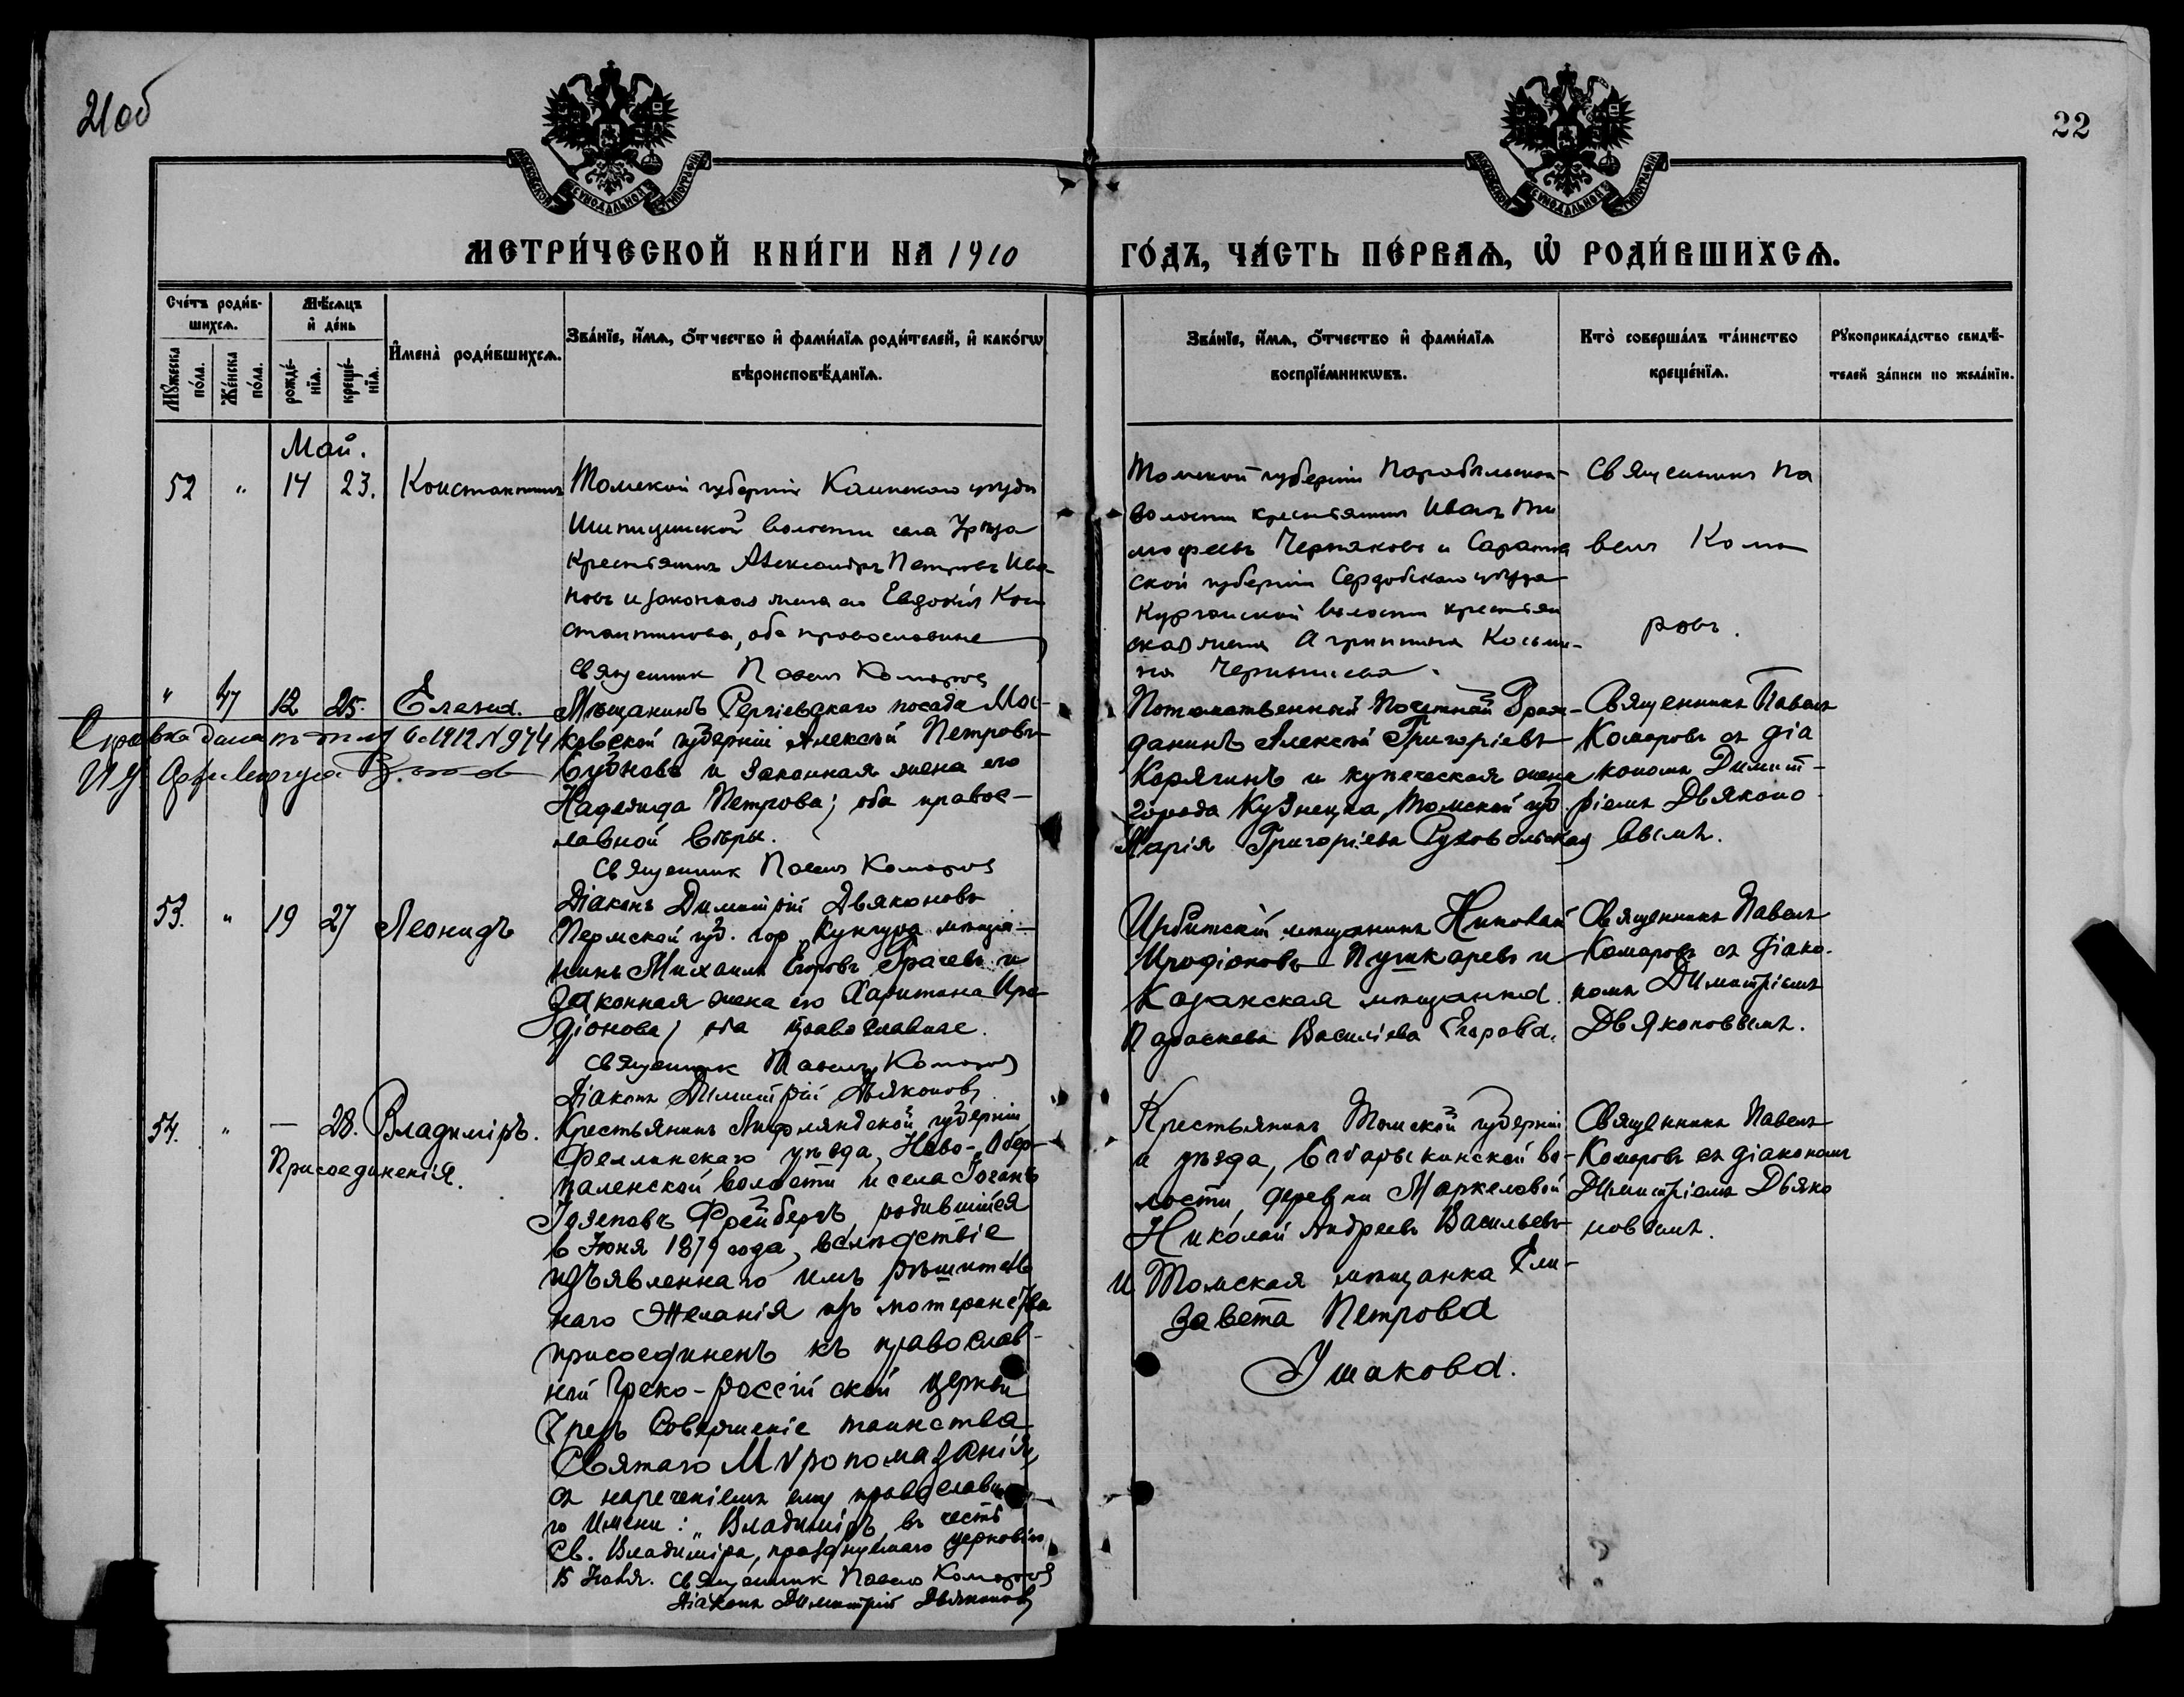 21об
22
МОСКОВСКОЙ СѴНОДАЛЬНОЙ ТИПОГРАФІИ
МОСКОВСКОЙ СѴНОДАЛЬНОЙ ТИПОГРАФІИ
МЕТРИ́ЧЕСКОЙ КНИ́ГИ НА 1910
ГО́ДЪ, ЧА́СТЬ ПЕ́РВАѦ, Ѡ҆ РОДИ́ВШИХСѦ.
Сче́тъ роди́в-
шихсѧ.
Мѣ́сѧцъ
и҆ де́нь
Мꙋ́жеска
по́ла.
Же́нска
по́ла.
рожде́-
нїѧ.
креще́-
нїѧ.
И҆мена̀ роди́вшихсѧ.
Зва́нїе, и҆́мѧ, ѻ҆́тчество и҆ фами́лїѧ роди́телей, и҆ како́гѡ
вѣроисповѣ́данїѧ.
Зва́нїе, и҆́мѧ, ѻ҆́тчество и҆ фами́лїѧ
воспрїе́мникѡвъ.
Кто̀ соверша́лъ та́инство
креще́нїѧ.
Рꙋкоприкла́дство свидѣ́-
телей за́писи по жела́нїю.
Май.
52 " 14 23. Константинъ
Томской губерніи Каинскаго уѣзда
Шипицинской волости села Урѣза
Крестьянинъ Александръ Петровъ Ива
новъ и законная жена его Евдокія Кон
стантинова, оба православные
Священник Павел Комаров
Томской губерніи Парабельской
волости крестьянинъ Иванъ Ти
мофеевъ Черняковъ и Саратов
ской губерніи Сердобскаго уѣзда
Курганской волости крестьян
ская жена Агриппина Косьми-
на Чернышева.
Священникъ Па
велъ Кома
ровъ.
" 47 12 25. Елена.
Справка дана 1912 N 974
Мѣщанинъ Сергіевскаго посада Мос-
ковской губерніи Алексѣй Петровъ
Бубновъ и законная жена его
Надежда Петрова; оба правос-
лавной вѣры.
Священник Павел Комаров
Діаконъ Димитрій Дьяконовъ
Потомственный Почетный Граж-
данинъ Алексѣй Григоріевъ
Карягинъ и купеческая жена
города Кузнецка, Томской губ.
Марія Григоріева Суховольская
Священникъ Павелъ
Комаровъ съ діа
кономъ Димит-
ріемъ Дьяконо-
вымъ.
53. " 19 27 Леонидъ
Пермской губ. гор. Кунгура мѣща-
нинъ Михаилъ Егоровъ Грачевъ и
законная жена его Харитина Иро-
діонова; оба православные.
Священник Павел Комаров
Діаконъ Димитрій Дьяконовъ
Ирбитскій мѣщанинъ Николай
Иродіоновъ Пушкаревъ и
Казанская мѣщанка
Параскева Василіева Егорова.
Священникъ Павелъ
Комаровъ съ діако-
номъ Димитріемъ
Дьяконовымъ.
54. " — 28. Владиміръ.
Присоединенія.
Крестьянинъ Лифляндской губерніи
Феллинскаго уѣзда, Ново-Обер-
паленской волости и села Іоганъ
Іозеповъ Фрейбергъ, родившійся
6 Іюня 1879 года, вслѣдствіе
изъявленнаго имъ рѣшитель
наго желанія изъ лютеранства
присоединенъ къ православ-
ной Греко-россійской церкви
чрезъ Совершеніе таинства
Святаго Мѵропомазанія,
съ нареченіемъ ему православна
го имени: „Владиміръ, въ честь
Св. Владиміра, празднуемаго церковію
15 Іюля. Священник Павел Комаров
Діаконъ Димитрій Дьяконовъ
Крестьянинъ Томской губерніи
и уѣзда, Бабарыкинской во-
лости, деревни Маркеловой
Николай Андреевъ Васильевъ
и Томская мѣщанка Ели-
завета Петрова
Ушакова.
Священникъ Павелъ
Комаровъ съ діакономъ
Димитріемъ Дьяко
новымъ.